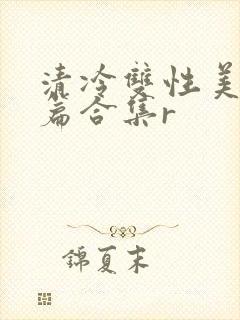 清冷雙性美
篇合集r
錦夏末